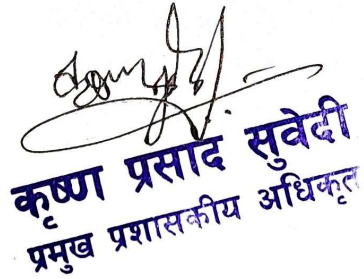 कृष्ण प्रसाद सुवेदी
प्रमुख प्रशासकीय अधिकृत